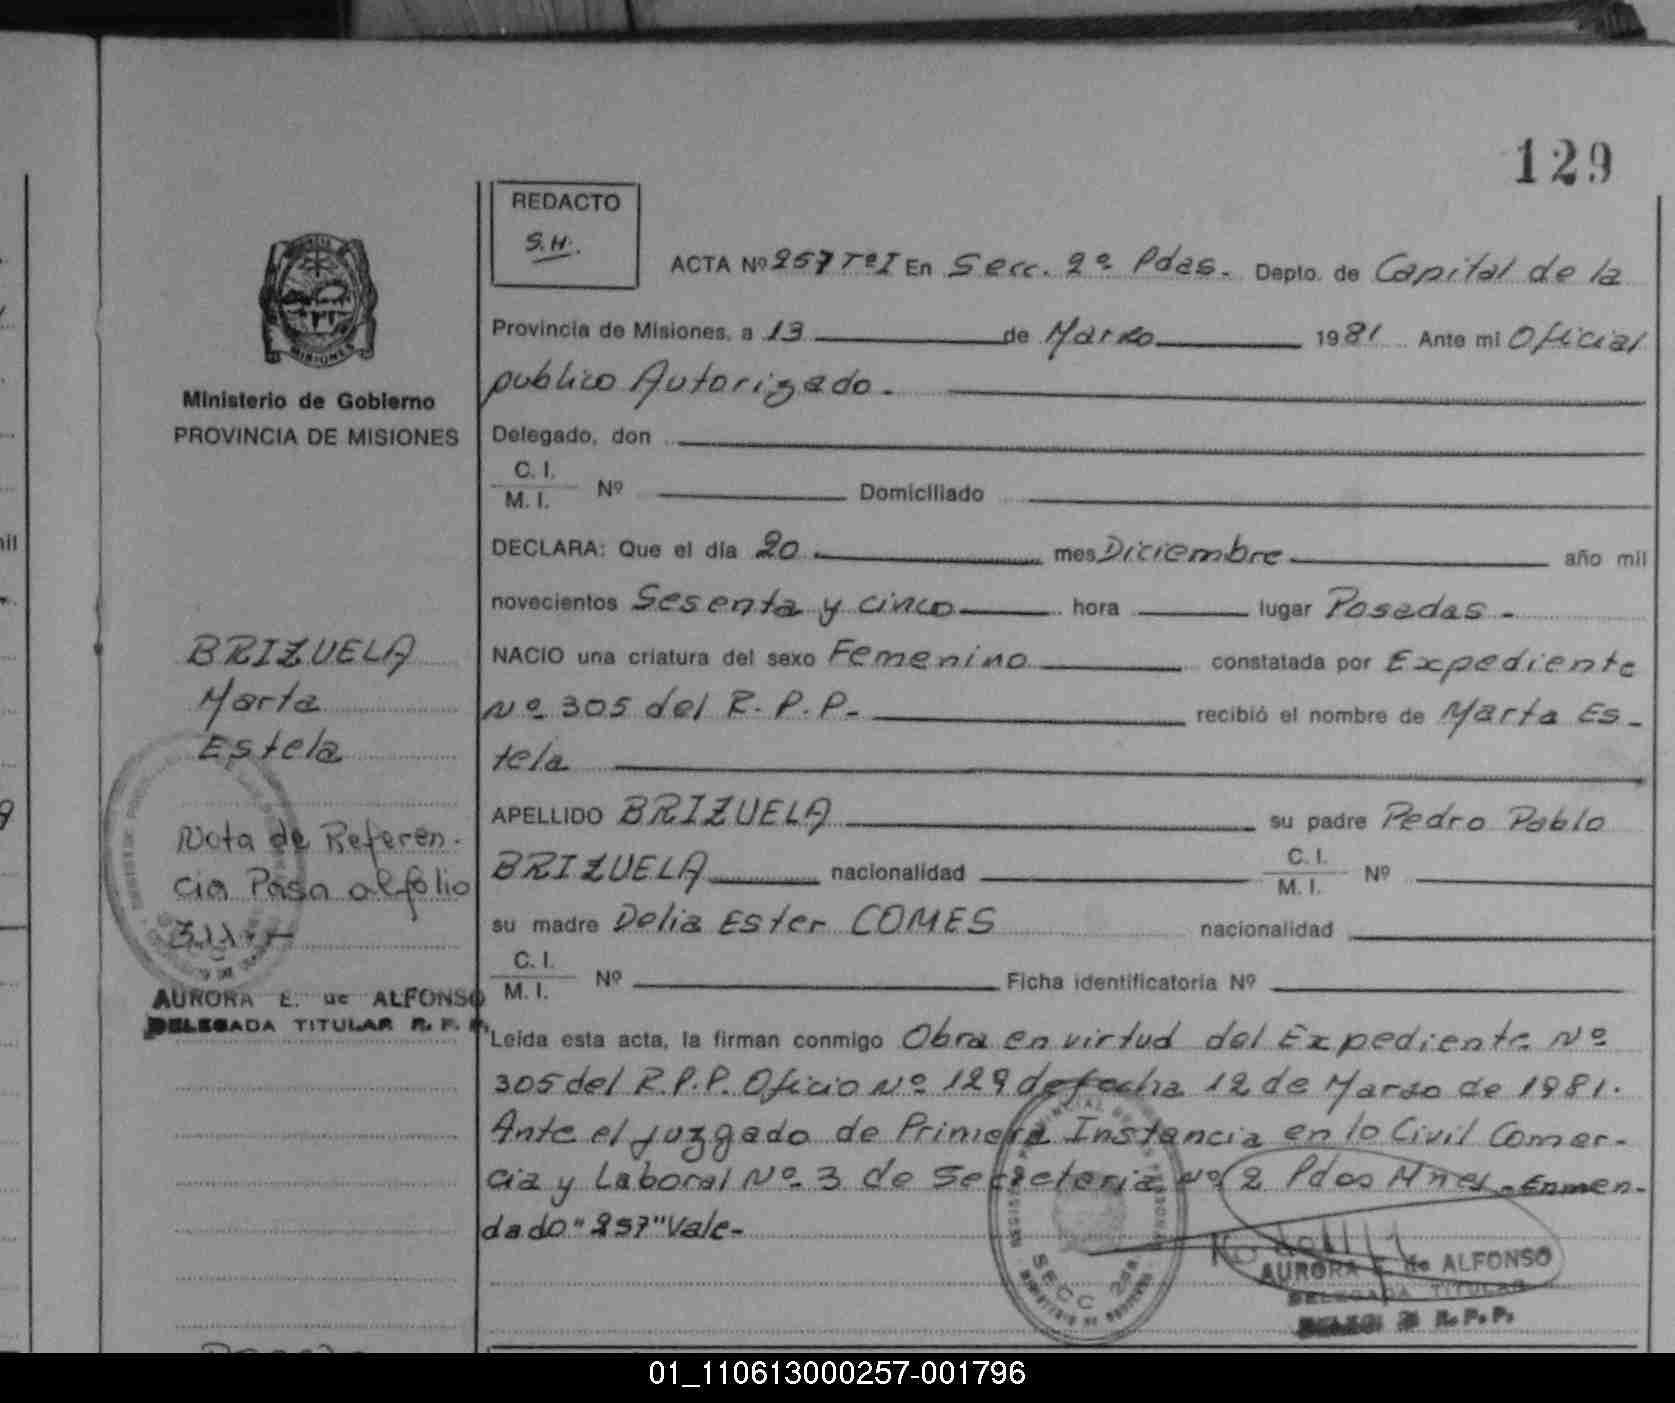 129
REDACTO
S.H.
ACTA Nº 257 Tº I En Secc. 2º Pdas. Depto. de Capital de la
Provincia de Misiones, a 13 de Marzo 1981 Ante mi Oficial
publico Autorizado.
Delegado, don
C. I.
M. I. Nº Domiciliado
DECLARA: Que el día 20 mes Diciembre año mil
novecientos Sesenta y cinco hora lugar Posadas -
NACIO una criatura del sexo Femenino constatada por Expediente
Nº 305 del R. P. P. recibió el nombre de Marta Es-
tela
APELLIDO BRIZUELA su padre Pedro Pablo
BRIZUELA nacionalidad C. I. M. I. Nº
su madre Delia Ester COMES nacionalidad
C. I.
M. I. Nº Ficha identificatoria Nº
Leída esta acta, la firman conmigo Obra en virtud del Expediente Nº
305 del R.P.P. Oficio Nº 129 de fecha 12 de Marzo de 1981.
Ante el juzgado de Primera Instancia en lo Civil Comer-
cia y Laboral Nº 3 de Secretaria Nº 2 Pdas Mnes - Enmen-
dado "257" Vale-
SECC 2da
AURORA E. de ALFONSO
DELEGADA TITULAR
R.P.P.
MISIONES
Ministerio de Gobierno
PROVINCIA DE MISIONES
BRIZUELA
Marta
Estela
Nota de Referen-
cia Pasa al folio
AURORA E. de ALFONSO
DELEGADA TITULAR R. P. P.
01_110613000257-001796